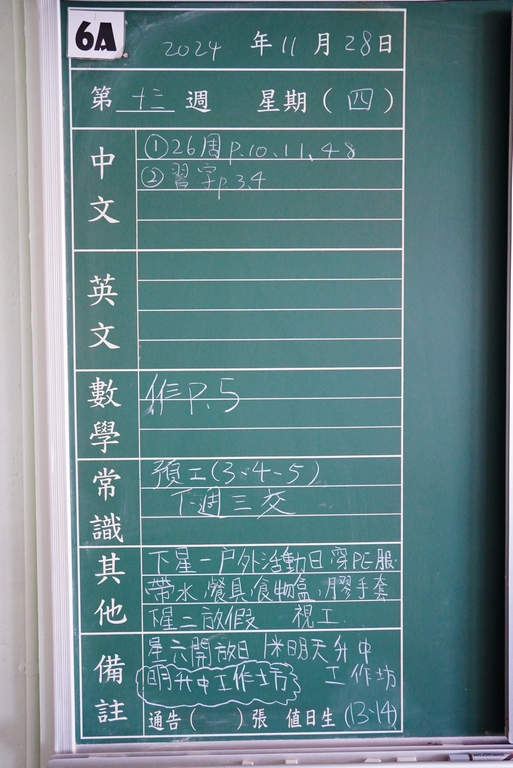 6A
2024 年 11 月 28 日
第 十三 週 星期 ( 四 )
中文
①26周 p.10、11、48
②習字p3,4
英文
數學
作P.5
常識
預工(3、4、5)
下週三交
其他
下星一戶外活動日 穿PE服
帶水,餐具,食物盒,膠手套
下星二放假 視工
備註
星六開放日 明天升中
工作坊
明升中工作坊
通告 ( ) 張 值日生 (13-14)